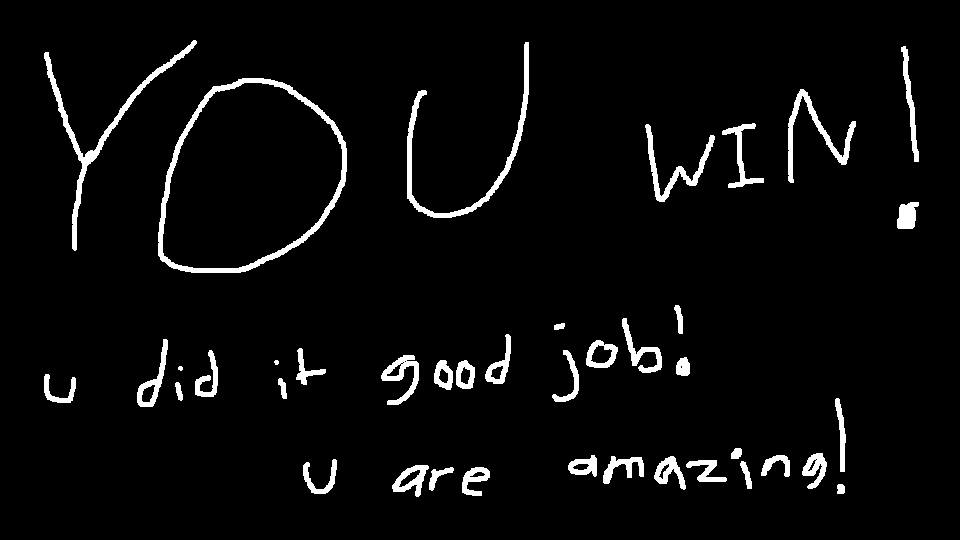 YOU WIN!
u did it good job!
u are amazing!